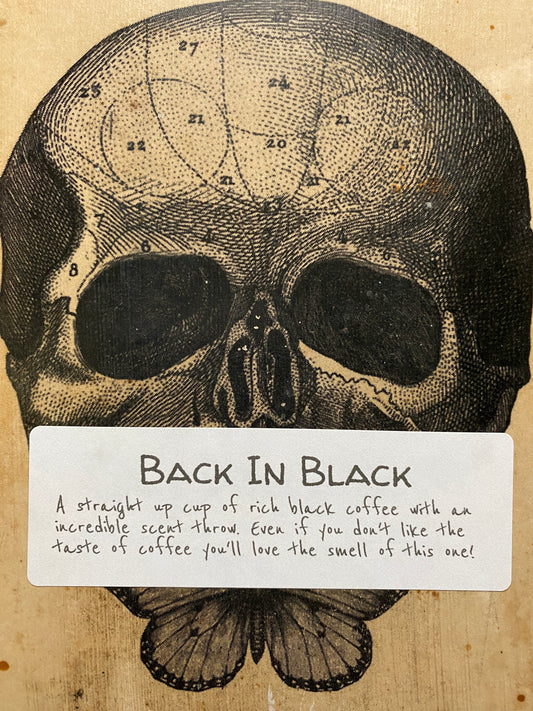 22
27
24
28
21
21
22
20
21
7
8
6
4
6
8
Back In Black
A straight up cup of rich black coffee with an
incredible scent throw. Even if you don't like the
taste of coffee you'll love the smell of this one!